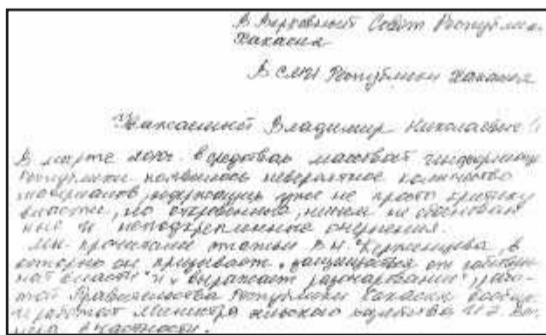 В Верховный Совет Республики
Хакасия
В СМИ Республики Хакасия
Уважаемый Владимир Николаевич!
В марте в средствах массовой информации
Республики появилось невероятное количество
материалов, содержащих уже не просто критику
власти, но откровенно, ничем не обоснован
ные и неподкрепленные очернения.
Мы прочитали статьи В.М. в
которой он призывает "защищаться от
власти" и "выражает разочарование",
той Правительства Республики Хакасия вообще
и работой Министра сельского хозяйства И.Г.
в частности.